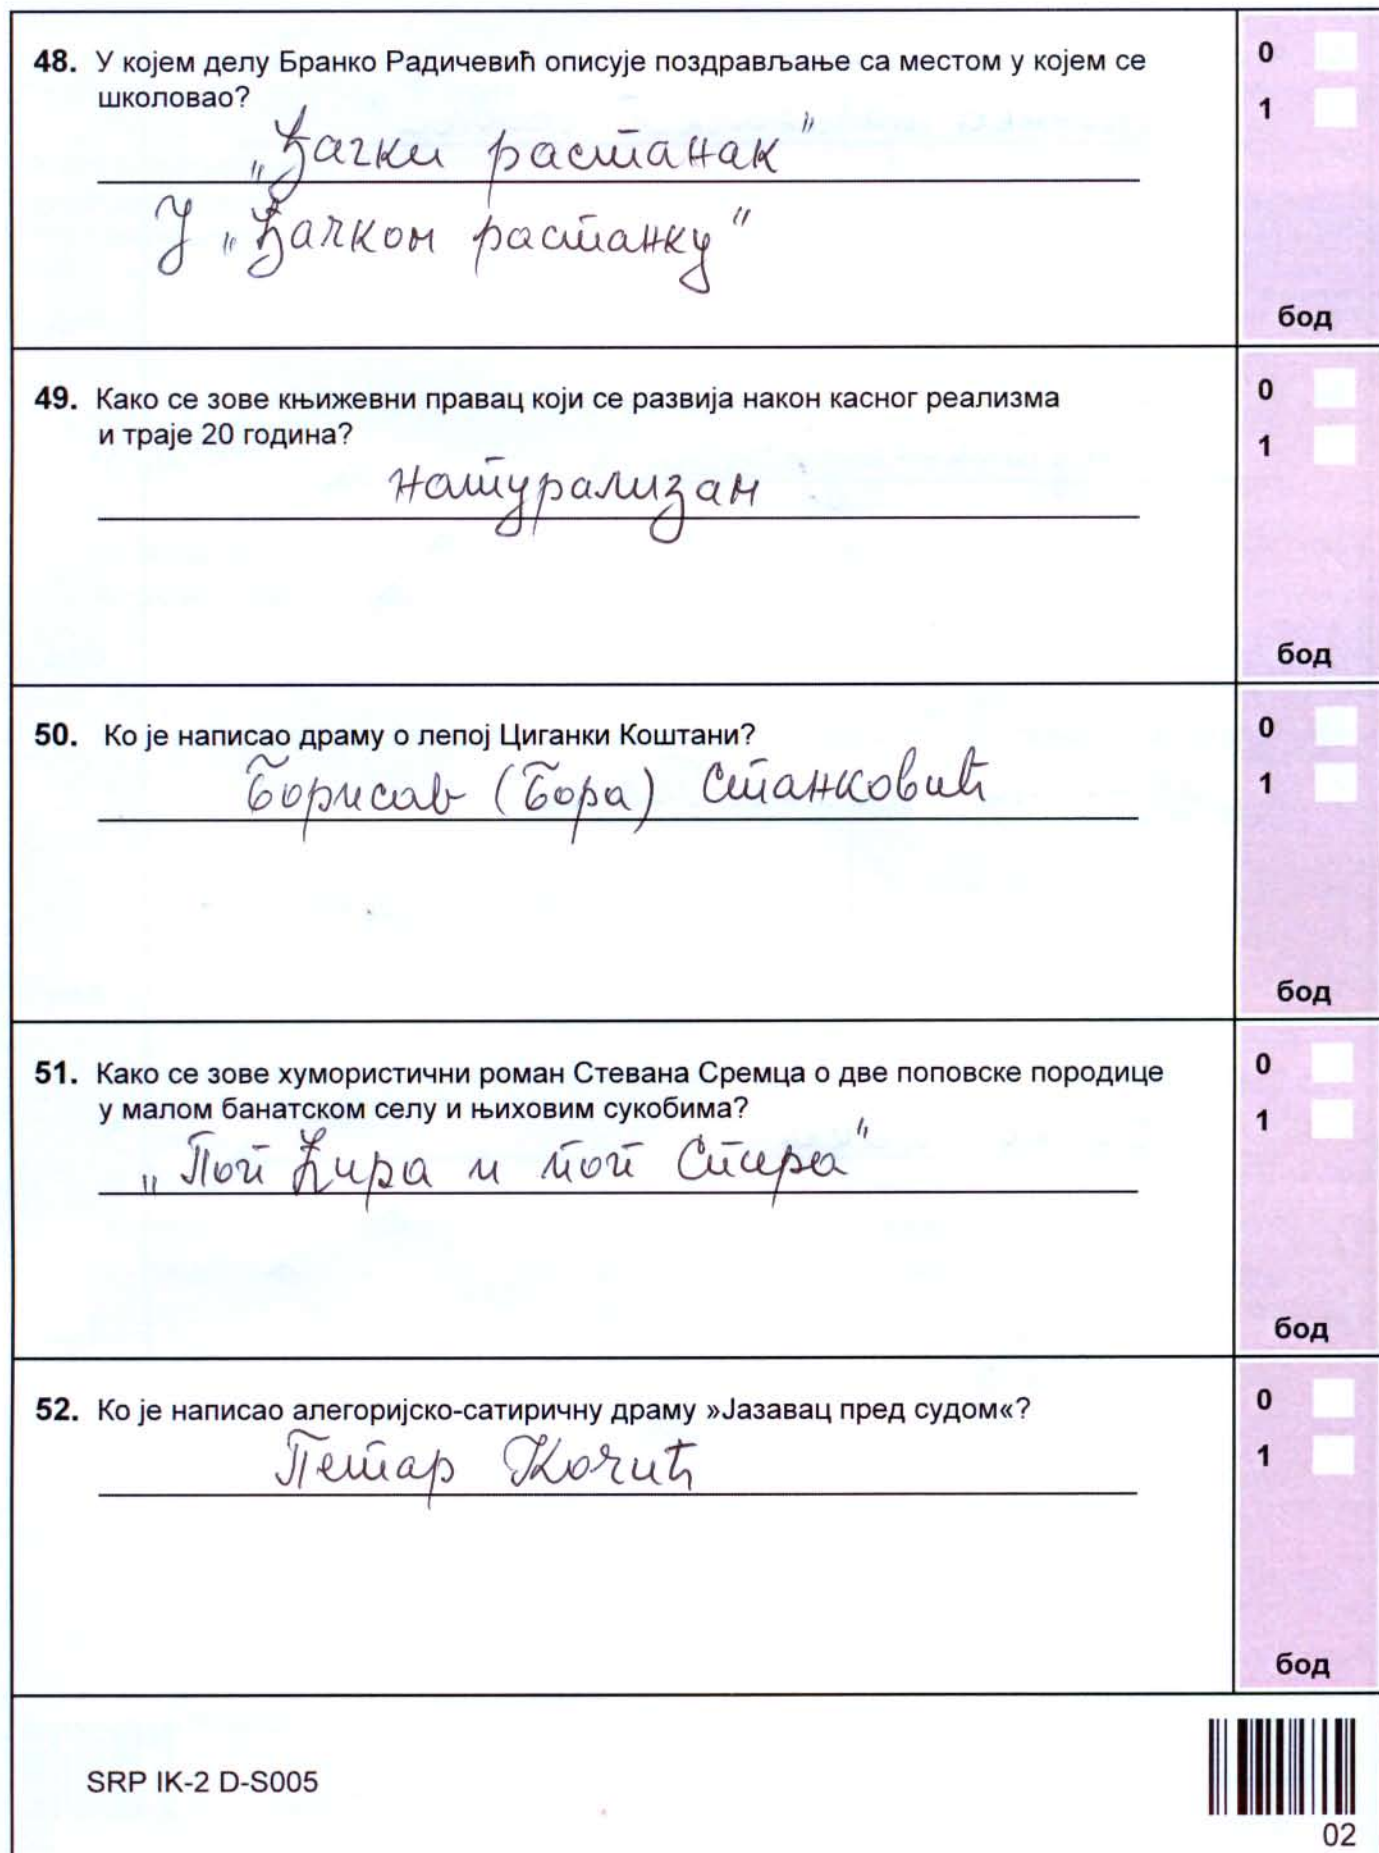 48. У којем делу Бранко Радичевић описује поздрављање са местом у којем се
школовао?
„Ђачки растанак"
У „Ђачком растанку"
0
1
бод
49. Како се зове књижевни правац који се развија након касног реализма
и траје 20 година?
натурализам
0
1
бод
50. Ко је написао драму о лепој Циганки Коштани?
Борисав (Бора) Станковић
0
1
бод
51. Како се зове хумористични роман Стевана Сремца о две поповске породице
у малом банатском селу и њиховим сукобима?
„Поп Ћира и поп Спира"
0
1
бод
52. Ко је написао алегоријско-сатиричну драму »Јазавац пред судом«?
Петар Кочић
0
1
бод
SRP IK-2 D-S005
02